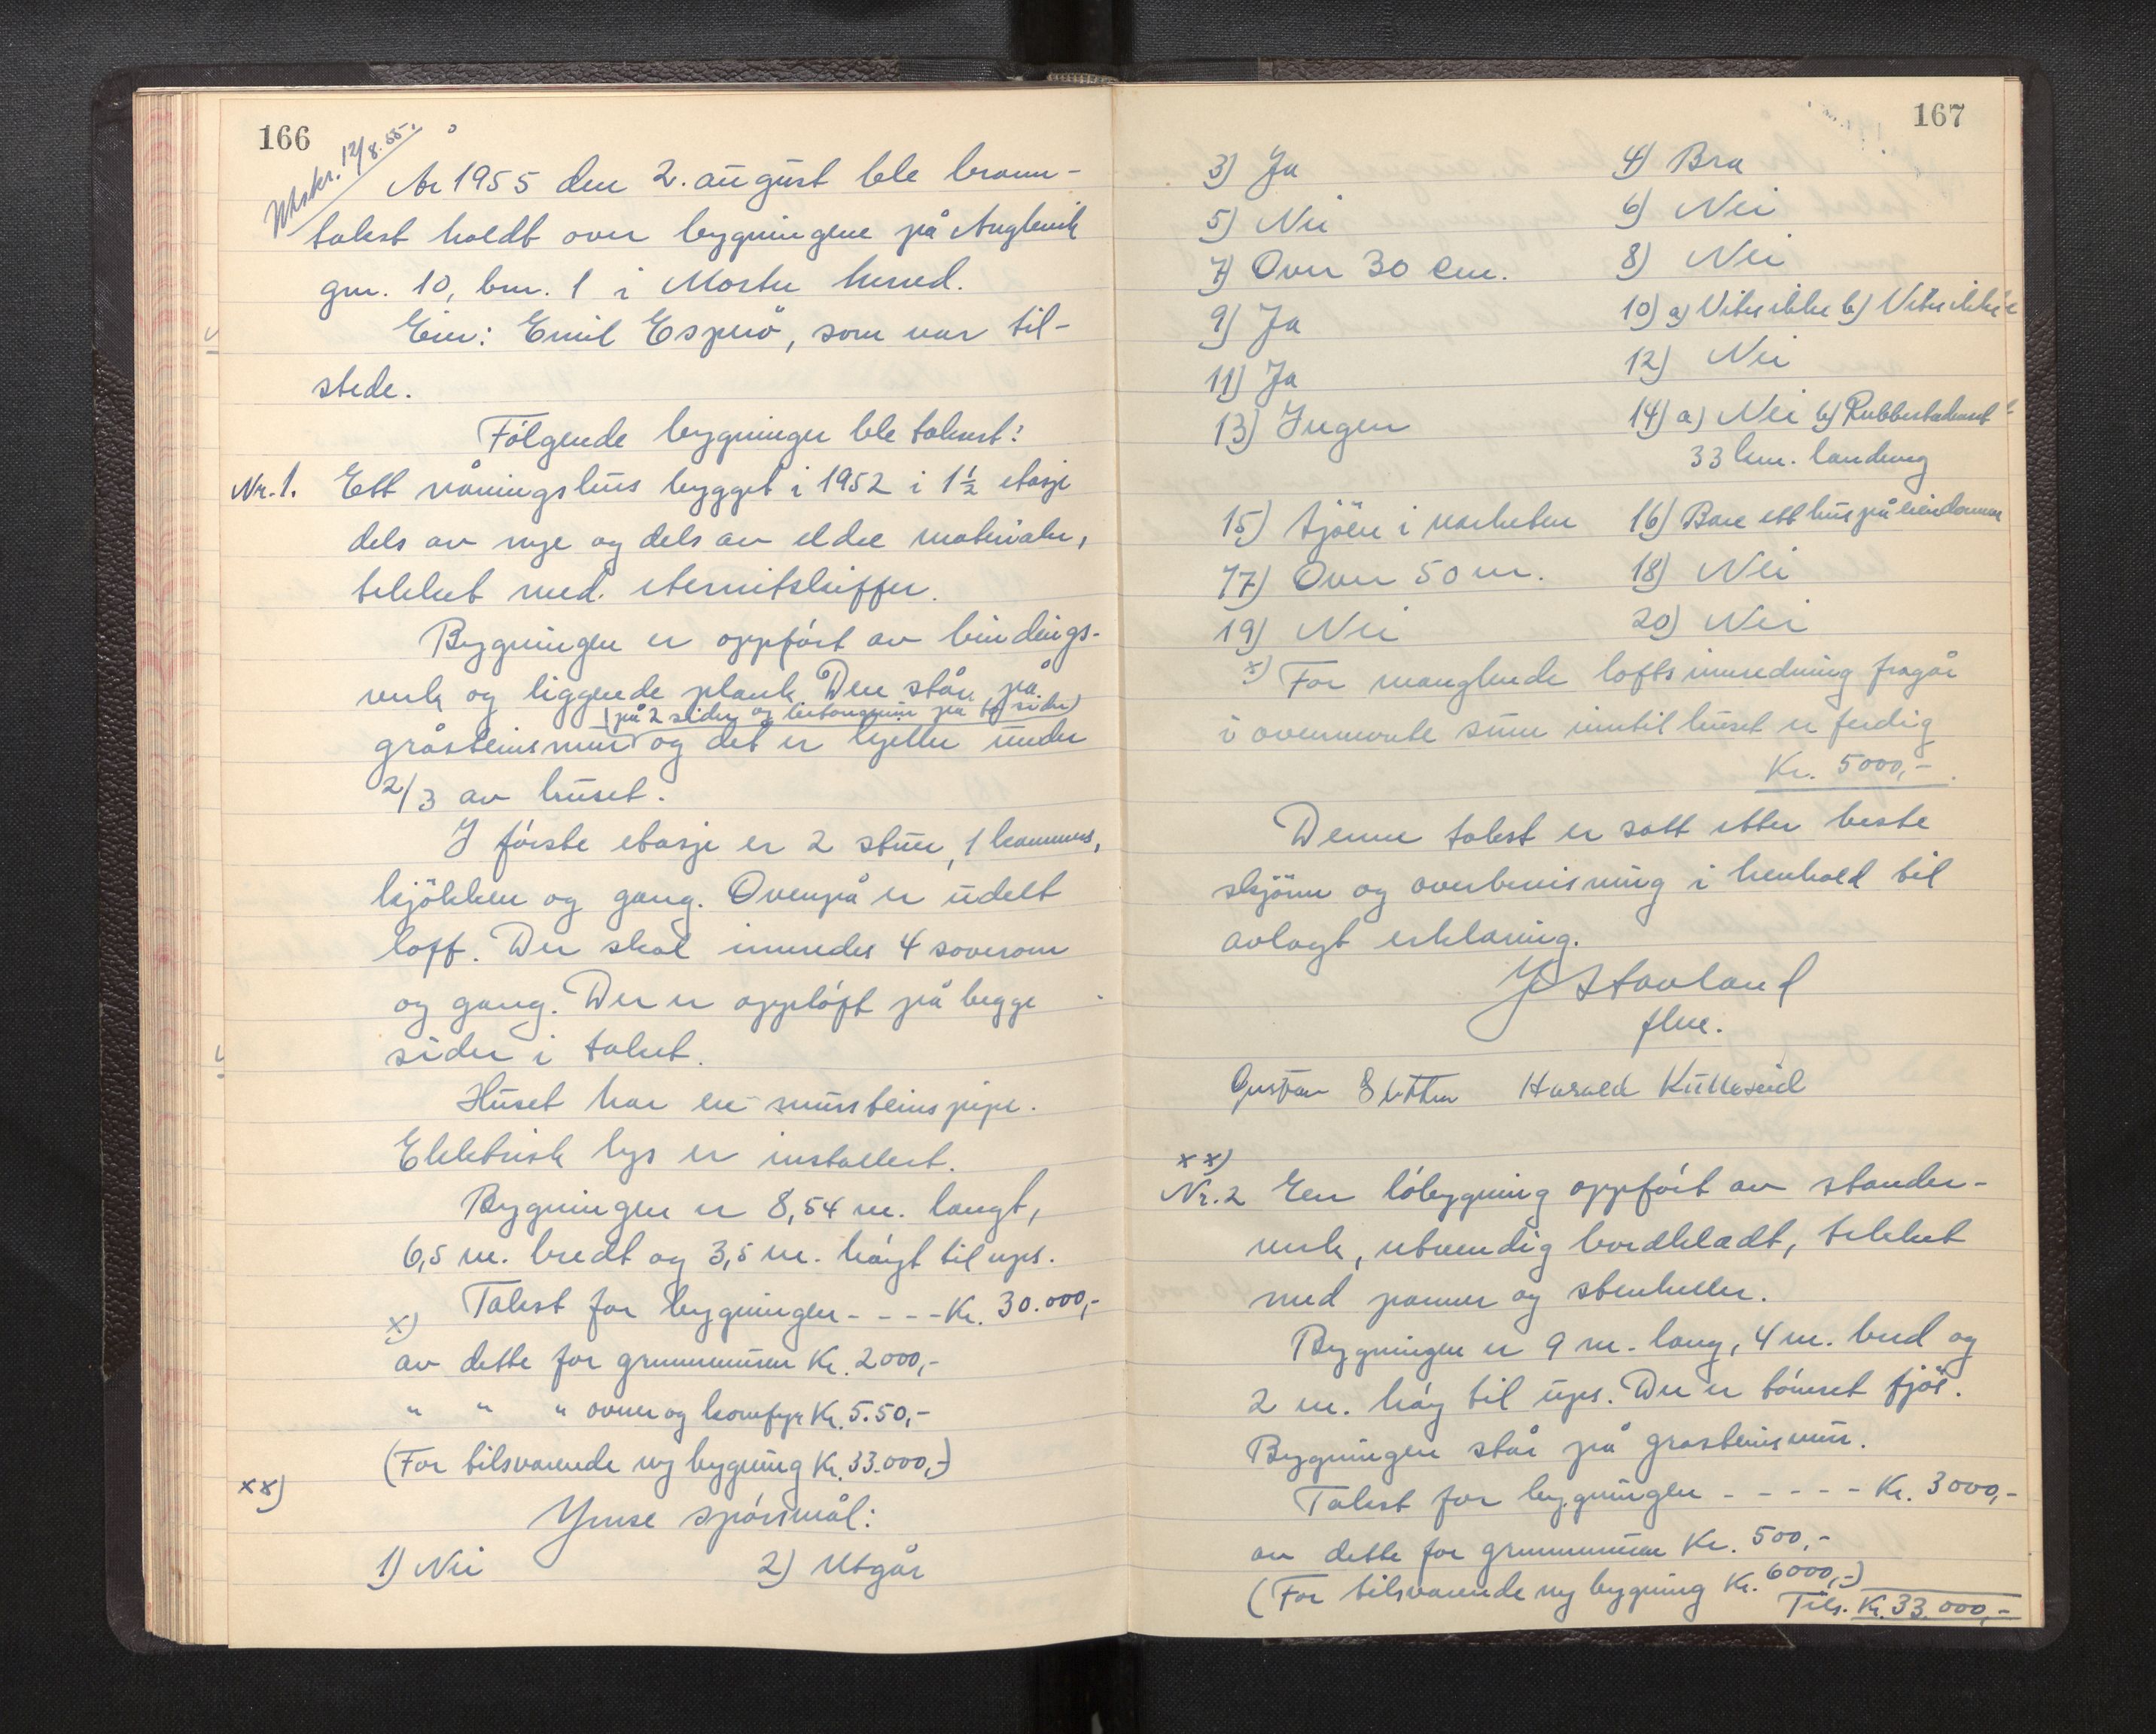 166
Utskr. 12/8.55.
År 1955 den 2. august ble brann-
takst holdt over bygningene på Anglevik
gnr. 10, bnr. 1 i Moster herred.
Eier: Emil Esperö, som var til-
stede.
Fölgende bygninger ble taksert:
Nr. 1. Ett våningshus bygget i 1952 i 1½ etasje
dels av nye og dels av eldre materialer,
tekket med eternitskiffer.
Bygningen er oppfört av bindings-
verk og liggende plank. Den står på
(på 2 sider og betongmur på to sider)
gråsteinsmur og det er kjeller under
2/3 av huset.
I förste etasje er 2 stuer, 1 kammers,
kjökken og gang. Ovenpå er udelt
loft. Der skal innredes 4 soverom
og gang. Der er oppløft på begge
sider i taket.
Huset har en mursteinspipe.
Elektrisk lys er installert.
Bygningen er 8,54 m. langt,
6,5 m. bredt og 3,5 m. höygt til ups.
x) Takst for bygningen - - - - Kr. 30.000,-
av dette for grunnmuren Kr. 2000,-
" " " ovner og komfyr Kr. 5.50,-
(For tilsvarende ny bygning Kr. 33.000,-)
xx)
Ymse spörsmål:
1) Nei 2) Utgår
167
3) Ja 4) Bra
5) Nei 6) Nei
7) Over 30 cm. 8) Nei
9) Ja 10) a) Vites ikke b) Vites ikke
11) Ja 12) Nei
13) Ingen 14) a) Nei b) Rubbestadneset
33 km. landveg
15) Sjöen i nærheten 16) Bare ett hus på eiendommen
17) Over 50 m. 18) Nei
19) Nei 20) Nei
x) For manglende loftsinnredning fragår
i ovennevnte sum inntil huset er ferdig
Kr. 5000,-
Denne takst er satt etter beste
skjönn og overbevisning i henhold til
avlagt erklæring.
J Stavland
flm.
Gustav Harald Kulleseid
xx)
Nr. 2 Een löbygning oppfört av stander-
verk, utvendig bordkledt, tekket
med panner og stenheller.
Bygningen er 9 m. lang, 4 m. bred og
2 m. höy til ups. Der er tömret fjös.
Bygningen står på grasteinsmur.
Takst for bygningen - - - - - Kr. 3000,-
av dette for grunnmuren Kr. 500,-
(For tilsvarende ny bygning Kr. 6000,-)
Tils. Kr. 33.000,-